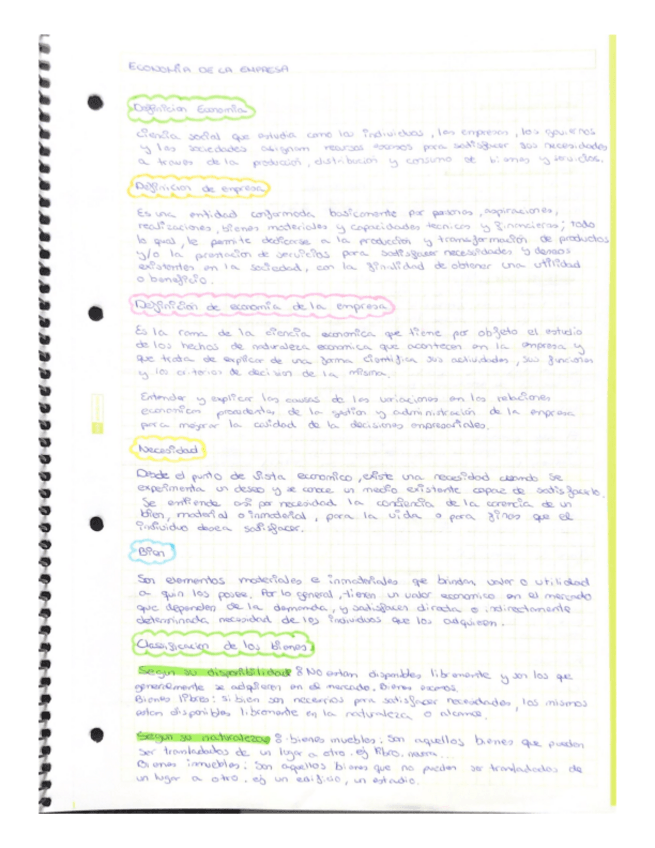 ECONOMIA DE LA EMPRESA
Definicion Economia
Ciencia social que estudia como los individuos, las empresas, los gobiernos
y las sociedades asignan recursos escasos para satisfacer sus necesidades
a traves de la produccion, distribucion y consumo de bienes y servicios.
Definicion de empresa
Es una entidad conformada basicamente por personas, aspiraciones,
realizaciones, bienes materiales y capacidades tecnicas y financieras; todo
lo qual, le permite dedicarse a la produccion y transformación de productos
y/o la prestacion de servicios para satisfacer necesidades y deseos
existentes en la sociedad, con la finalidad de obtener una utilidad
o beneficio.
Definición de economia de la empresa
Es la rama de la ciencia economica que tiene por objeto el estudio
de los hechos de naturaleza economica que acontecen en la empresa y
que trata de explicar de una forma cientifica sus actividades, sus funciones
y los criterios de decision de la misma.
Entender y explicar las causas de las variaciones en las relaciones
economicas procedentes de la gestion y administración de la empresa
para mejorar la calidad de la decisiones empresariales.
Necesidad
Desde el punto de vista economico, existe una necesidad cuando se
experimenta un deseo y se conoce un medio existente capaz de satisfacerlo.
Se entiende asi por necesidad la conciencia de la carencia de un
bien, material o inmaterial, para la vida o para fines que el
individuo desea satisfacer.
Bien
Son elementos materiales e inmateriales que brindan valor o utilidad
a quin los posee. Por lo general, tienen un valor economico en el mercado
que dependen de la demanda, y satisfacen directa o indirectamente
determinada necesidad de los individuos que los adquieren.
Clasificacion de los bienes
Segun su disponibilidad: No estan disponibles libremente y son los que
generalmente se adquieren en el mercado. Bienes escasos.
Bienes libres: si bien son necesarios para satisfacer necesidades, los mismos
estan disponibles libremente en la naturaleza o alcance.
Segun su naturaleza: bienes muebles: Son aquellos bienes que pueden
ser transladados de un lugar a otro. ej libro,
Bienes inmuebles: Son aquellos bienes que no pueden ser transladados de
un lugar a otro. ej un edificio, un estadio.